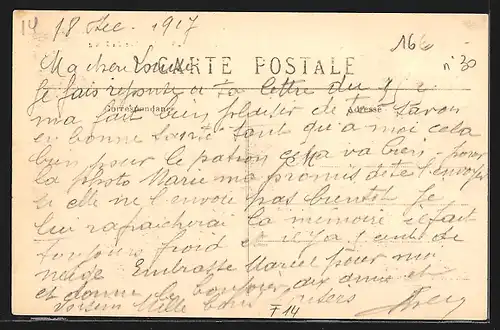 14 18 Dec 1917
166
n° 30
Ma chere Louise
CARTE POSTALE
Correspondance
Adresse
Je fais reponse a ta lettre du
ma fait bien plaisir de te savoir
en bonne santé tant qu'a moi cela
bien pour le patron cela va bien pour
la photo Marie ma promis de te l'envoyer
si elle ne l'envoie pas bientot je
lui rapaicherai la memoire il fait
toujours froid et il y a 5 cent de
neige Embrasse Marcel pour moi
et donne le bonjour aux amies et
voisins Mille bons
F 14